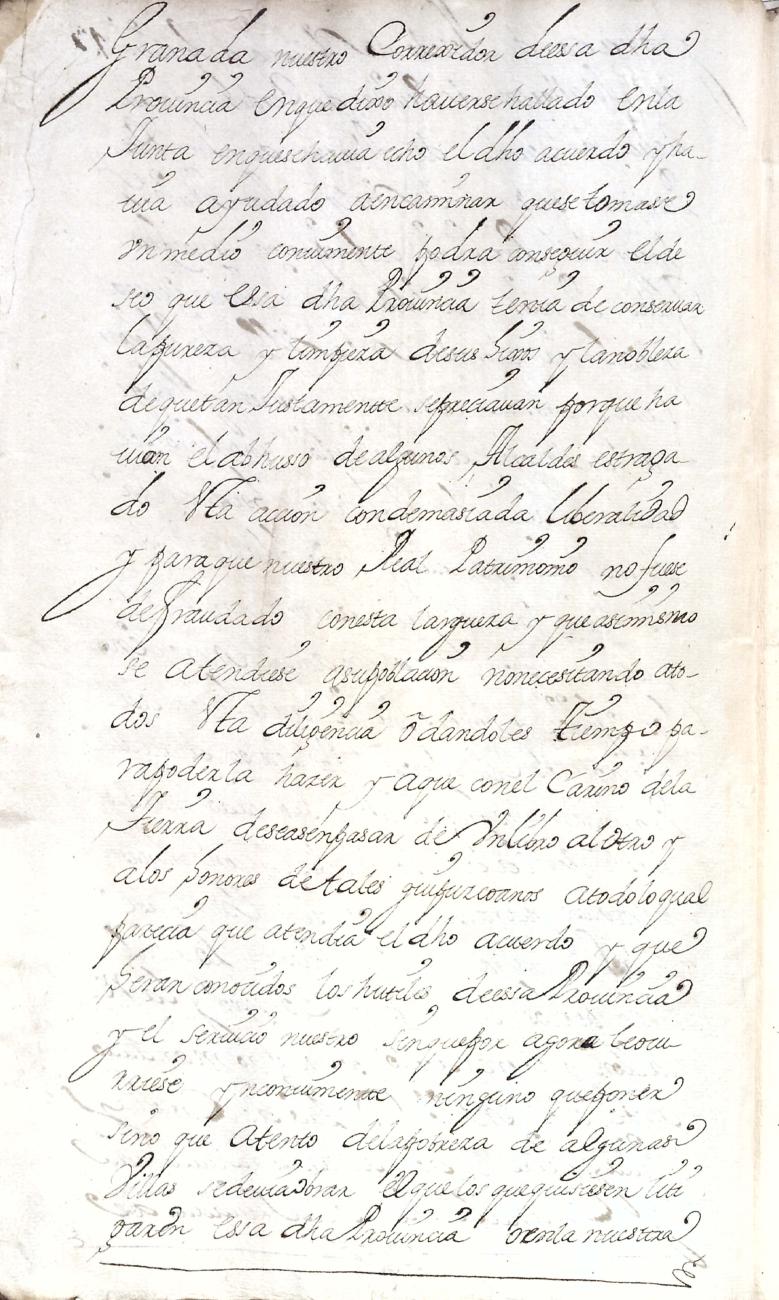 Granada nuestro Correxidor deessa dha
Prouincia enque dixo hauerse hallado enla
Junta enqueschauia echo el dho acuerdo y ha-
uia ayudado aencaminar quesetomase
vnmedio conuiniente podra conseguir elde
seo que essa dha Prouincia tenia de conseruar
lapureza y limpieza desus hixos y lanobleza
dequetan Justamentte sepreciauan porque ha
uian elabhusso dealgunos Alcaldes estraga
do sta accion condemasiada liberalidad
y paraque nuestro Real Patrimonio nofuese
defraudado conesta largueza y queasimismo
se atendiese asupoblacion nonecesitando ato-
dos sta diligencia o dandoles tiempo pa-
rapoderla hazer y aque conel Carino dela
Tierra deseasenpasar de Vnlibro alotro y
alos honores detales guipuzcoanos atodoloqual
parecia que atendia el dho acuerdo y que
heran conocidos loshutiles deessa Prouincia
y el seruicio nuestro sinquepor agora leocu
rriese ynconuiniente ninguno queponer
sino que atento delapobreza de algunas
Villas sedeuiaobrar elquelos quequisiesen liti
garen essa dha Prouincia oenla nuestra